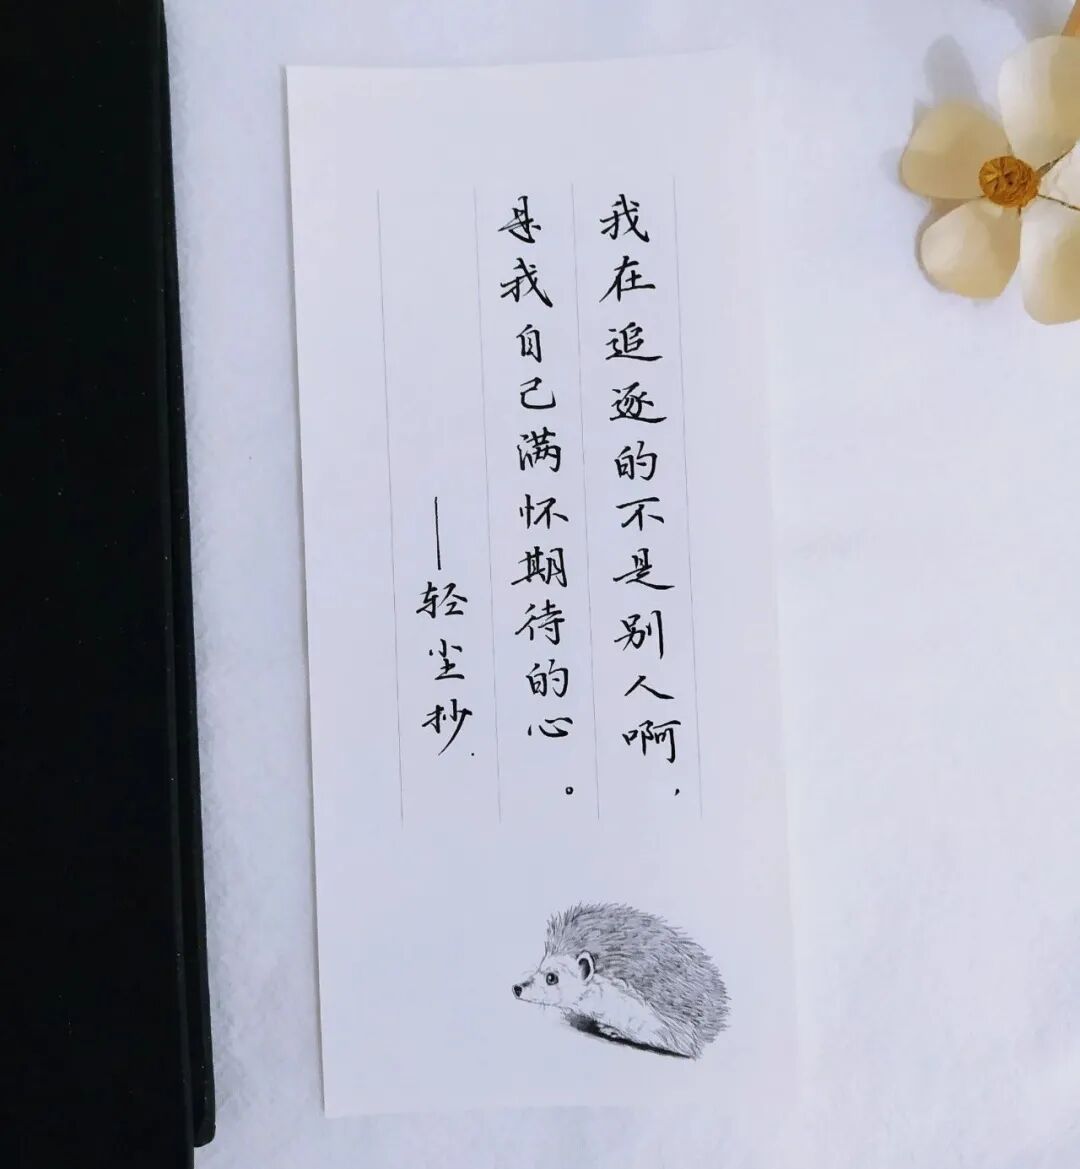 我在追逐的不是别人啊，
是我自己满怀期待的心。
——轻尘抄.